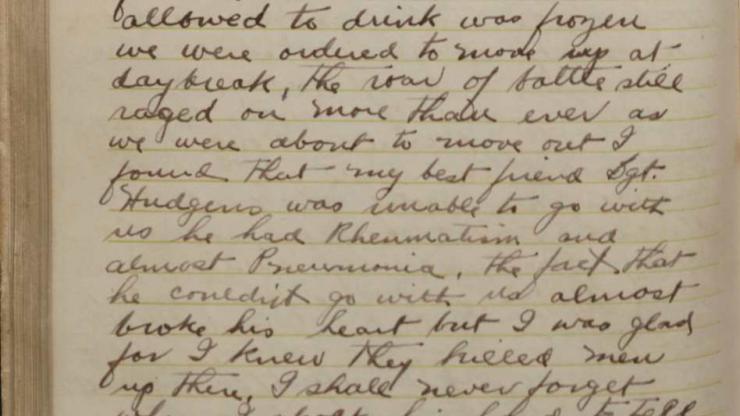 allowed to drink was frozen
we were ordered to move up at
daybreak, the roar of battle still
raged on more than ever as
we were about to move out I
found that my best friend Sgt.
Hudgens was unable to go with
us he had Rheumatism and
almost Pneumonia, the fact that
he couldn't go with us almost
broke his heart but I was glad
for I knew they killed men
up there, I shall never forget